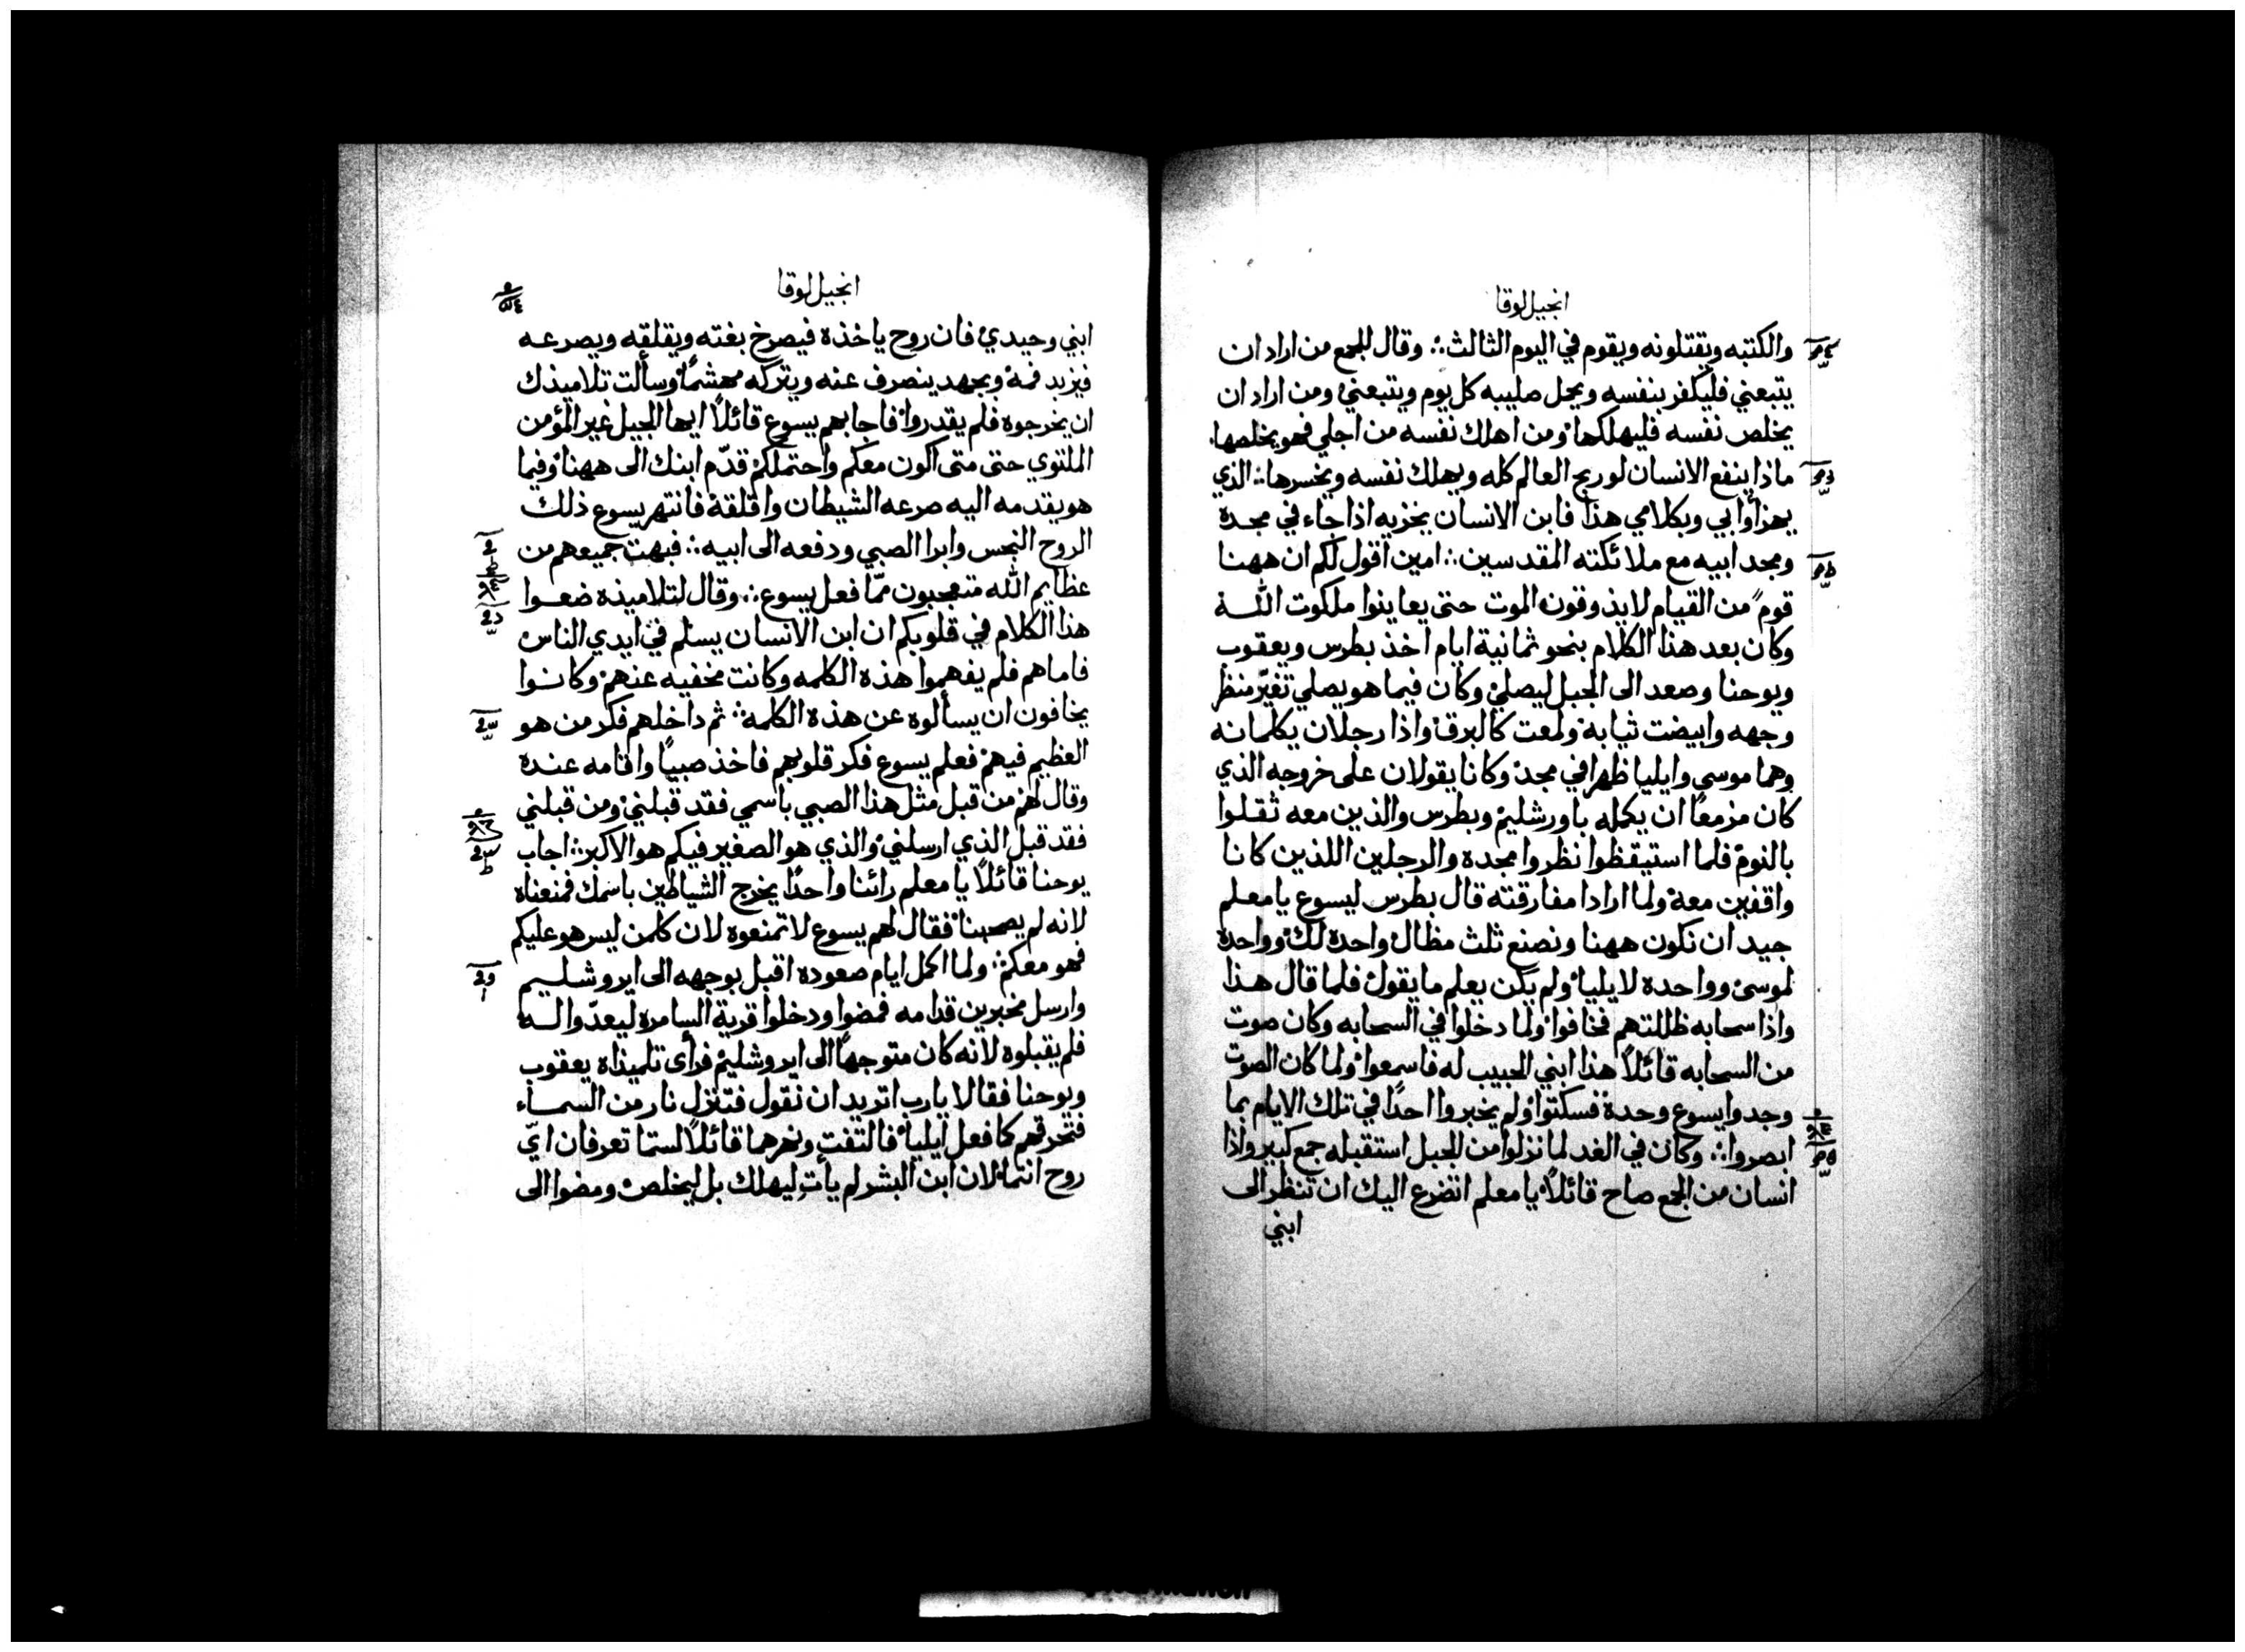 انجيل لوقا
والكتبه ويقتلونه ويقوم في اليوم الثالث ∴ وقال للجمع من اراد ان
يتبعني فليكفر بنفسه ويحمل صليبه كل يوم ويتبعني ومن اراد ان
يخلص نفسه فليهلكها ومن اهلك نفسه من اجلي فهو يخلصها
ماذا ينفع الانسان لو ربح العالم كله ويهلك نفسه ويخسرها ∴ الذي
يهزأ بي وبكلامي هذا فابن الانسان يخزيه اذا جاء في مجده
ومجد ابيه مع ملائكته المقدسين ∴ امين اقول لكم ان ههنا
قومٌ من القيام لا يذوقون الموت حتى يعاينوا ملكوت الله
وكان بعد هذا الكلام بنحو ثمانية ايام اخذ بطرس ويعقوب
ويوحنا وصعد الى الجبل ليصلي وكان فيما هو يصلي تغيّر منظر
وجهه وابيضت ثيابه ولمعت كالبرق واذا رجلان يكلمانه
وهما موسى وايليا ظهرا في مجد وكانا يقولان على خروجه الذي
كان مزمعًا ان يكمله باورشليم وبطرس والذين معه ثقلوا
بالنوم فلما استيقظوا نظروا مجده والرجلين اللذين كانا
واقفين معه ولما ارادا مفارقته قال بطرس ليسوع يا معلم
جيد ان نكون ههنا ونصنع ثلث مظال واحدة لك وواحدة
لموسى وواحدة لايليا ولم يكن يعلم ما يقول فلما قال هذا
واذا سحابه ظللتهم فخافوا ولما دخلوا في السحابه وكان صوت
من السحابه قائلاً هذا ابني الحبيب له فاسمعوا ولما كان الصوت
وجدوا يسوع وحدة فسكتوا ولم يخبروا احدًا في تلك الايام بما
ابصروا ∴ وكان في الغد لما نزلوا من الجبل استقبله جمع كبير واذا
انسان من الجمع صاح قائلاً يا معلم اتضرع اليك ان تنظر الى
ابني
انجيل لوقا
ابني وحيدي فان روح ياخذه فيصرخ بغته ويقلقه ويصرعه
فيزبد فمه وبجهد ينصرف عنه ويتركه مهشمًا وسألت تلاميذك
ان يخرجوه فلم يقدروا فاجابهم يسوع قائلاً ايها الجيل غير المؤمن
الملتوي حتى متى اكون معكم واحتملكم قدّم ابنك الى ههنا وفيما
هو يقدمه اليه صرعه الشيطان واقلقه فانتهر يسوع ذلك
الروح النجس وابرا الصبي ودفعه الى ابيه ∴ فبهت جميعهم من
عظايم الله متعجبون ممّا فعل يسوع ∴ وقال لتلاميذه ضعوا
هذا الكلام في قلوبكم ان ابن الانسان يسلم في ايدي الناس
فاما هم فلم يفهموا هذه الكلمه وكانت مخفيه عنهم وكانوا
يخافون ان يسألوه عن هذه الكلمه ∴ ثم داخلهم فكر من هو
العظيم فيهم فعلم يسوع فكر قلوبهم فاخذ صبيًا واقامه عنده
وقال لهم من قبل مثل هذا الصبي باسمي فقد قبلني ومن قبلني
فقد قبل الذي ارسلني والذي هو الصغير فيكم هو الاكبر ∴ اجاب
يوحنا قائلاً يا معلم رائنا واحدًا يخرج الشياطين باسمك فمنعناه
لانه لم يصحبنا فقال لهم يسوع لا تمنعوه لان كلمن ليس هو عليكم
فهو معكم ∴ ولما اكمل ايام صعوده اقبل بوجهه الى ايروشليم
وارسل مخبرين قدامه فمضوا ودخلوا قرية السامره ليعدّوا له
فلم يقبلوه لانه كان متوجهًا الى ايروشليم فرأى تلميذاه يعقوب
ويوحنا فقالا يا رب اتريد ان نقول فتنزل نار من السماء
فتحرقهم كما فعل ايليا فالتفت ونهرهما قائلاً لستما تعرفان ايّ
روح انتما لان ابن البشر لم يأت ليهلك بل ليخلص ومضوا الى